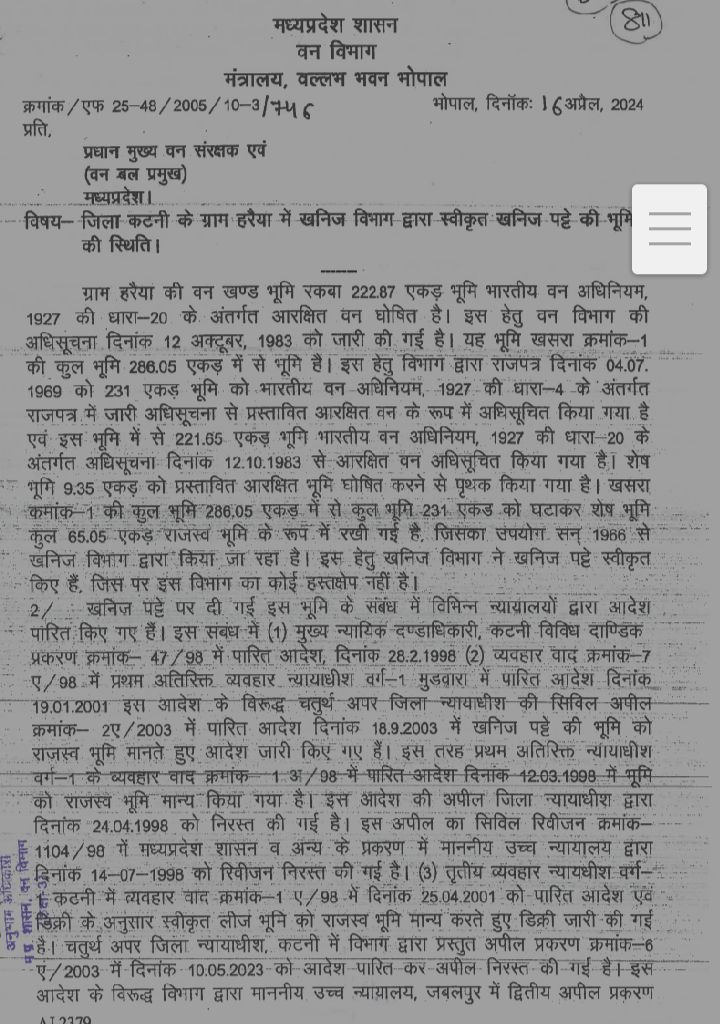 811
मध्यप्रदेश शासन
वन विभाग
मंत्रालय, वल्लभ भवन भोपाल
क्रमांक/एफ 25-48/2005/10-3/746 भोपाल, दिनॉकः 16 अप्रैल, 2024
प्रति,
प्रधान मुख्य वन संरक्षक एवं
(वन बल प्रमुख)
मध्यप्रदेश।
विषय– जिला कटनी के ग्राम हरैया में खनिज विभाग द्वारा स्वीकृत खनिज पट्टे की भूमि
की स्थिति।
ग्राम हरैया की वन खण्ड भूमि रकबा 222.87 एकड़ भूमि भारतीय वन अधिनियम,
1927 की धारा–20 के अंतर्गत आरक्षित वन घोषित है। इस हेतु वन विभाग की
अधिसूचना दिनांक 12 अक्टूबर, 1983 को जारी की गई है। यह भूमि खसरा क्रमांक–1
की कुल भूमि 286.05 एकड़ में से भूमि है। इस हेतु विभाग द्वारा राजपत्र दिनांक 04.07.
1969 को 231 एकड़ भूमि को भारतीय वन अधिनियम, 1927 की धारा–4 के अंतर्गत
राजपत्र में जारी अधिसूचना से प्रस्तावित आरक्षित वन के रूप में अधिसूचित किया गया है
एवं इस भूमि में से 221.65 एकड़ भूमि भारतीय वन अधिनियम, 1927 की धारा–20 के
अंतर्गत अधिसूचना दिनांक 12.10.1983 से आरक्षित वन अधिसूचित किया गया है। शेष
भूमि 9.35 एकड़ को प्रस्तावित आरक्षित भूमि घोषित करने से पृथक किया गया है। खसरा
कमांक–1 की कुल भूमि 286.05 एकड़ में से कुल भूमि 231 एकड को घटाकर शेष भूमि
कुल 65.05 एकड़ राजस्व भूमि के रूप में रखी गई है, जिसका उपयोग सन् 1966 से
खनिज विभाग द्वारा किया जा रहा है। इस हेतु खनिज विभाग ने खनिज पट्टे स्वीकृत
किए हैं, जिस पर इस विभाग का कोई हस्तक्षेप नहीं है।
2/ खनिज पट्टे पर दी गई इस भूमि के संबंध में विभिन्न न्यायालयों द्वारा आदेश
पारित किए गए हैं। इस संबंध में (1) मुख्य न्यायिक दण्डाधिकारी, कटनी विविध दाण्डिक
प्रकरण क्रमांक– 47/98 में पारित आदेश, दिनांक 28.2.1998 (2) व्यवहार वाद क्रमांक–7
ए/98 में प्रथम अतिरिक्त व्यवहार न्यायाधीश वर्ग–1 मुडवारा में पारित आदेश दिनांक
19.01.2001 इस आदेश के विरूद्ध चतुर्थ अपर जिला न्यायाधीश की सिविल अपील
क्रमांक– 2ए/2003 में पारित आदेश दिनांक 18.9.2003 में खनिज पट्टे की भूमि को
राजस्व भूमि मानते हुए आदेश जारी किए गए हैं। इस तरह प्रथम अतिरिक्त न्यायाधीश
वर्ग–1 के व्यवहार वाद क्रमांक– 1 अ/98 में पारित आदेश दिनांक 12.03.1998 में भूमि
को राजस्व भूमि मान्य किया गया है। इस आदेश की अपील जिला न्यायाधीश द्वारा
दिनांक 24.04.1998 को निरस्त की गई है। इस अपील का सिविल रिवीजन क्रमांक–
1104/98 में मध्यप्रदेश शासन व अन्य के प्रकरण में माननीय उच्च न्यायालय द्वारा
दिनांक 14-07-1998 को रिवीजन निरस्त की गई है। (3) तृतीय व्यवहार न्यायधीश वर्ग–
कटनी में व्यवहार वाद क्रमांक–1 ए/98 में दिनांक 25.04.2001 को पारित आदेश एवं
डिक्री के अनुसार स्वीकृत लीज भूमि को राजस्व भूमि मान्य करते हुए डिक्री जारी की गई
है। चतुर्थ अपर जिला न्यायाधीश, कटनी में विभाग द्वारा प्रस्तुत अपील प्रकरण क्रमांक–6
ए/2003 में दिनांक 10.05.2023 को आदेश पारित कर अपील निरस्त की गई है। इस
आदेश के विरूद्ध विभाग द्वारा माननीय उच्च न्यायालय, जबलपुर में द्वितीय अपील प्रकरण
अनुभाग अधिकारी
म.प्र. शासन, वन विभाग